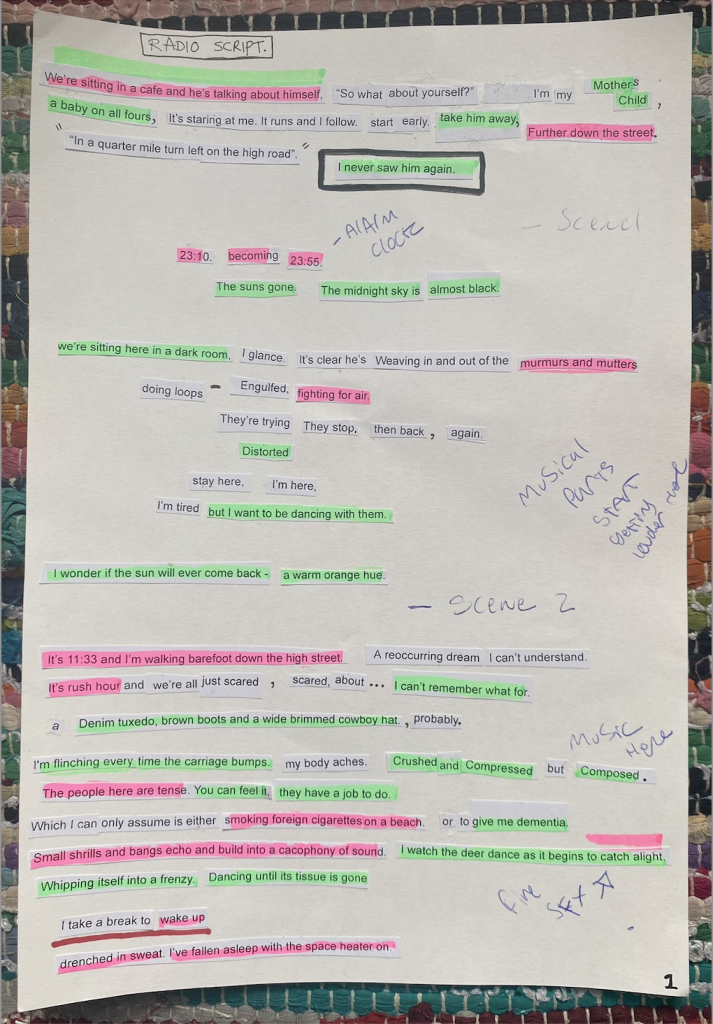 RADIO SCRIPT.
We're sitting in a cafe and he's talking about himself. "So what about yourself?" I'm my Mothers Child ,
a baby on all fours, It's staring at me. It runs and I follow. start early. take him away, Further down the street.
" "In a quarter mile turn left on the high road". "
I never saw him again.
- Scene 1
- AlArm
clock
23:10. becoming 23:55.
The suns gone. The midnight sky is almost black.
we're sitting here in a dark room. I glance. It's clear he's Weaving in and out of the murmurs and mutters
doing loops - Engulfed, fighting for air.
They're trying They stop, then back , again.
Distorted
stay here, I'm here,
I'm tired but I want to be dancing with them.
Musical
parts
start
getting
louder
I wonder if the sun will ever come back - a warm orange hue.
- Scene 2
It's 11:33 and I'm walking barefoot down the high street. A reoccurring dream I can't understand.
It's rush hour and we're all just scared , scared, about ... I can't remember what for.
a Denim tuxedo, brown boots and a wide brimmed cowboy hat. , probably.
Music
Here
I'm flinching every time the carriage bumps. my body aches. Crushed and Compressed but Composed .
The people here are tense. You can feel it, they have a job to do.
Which I can only assume is either smoking foreign cigarettes on a beach. or to give me dementia.
Small shrills and bangs echo and build into a cacophony of sound. I watch the deer dance as it begins to catch alight,
Whipping itself into a frenzy. Dancing until its tissue is gone
Fire
I take a break to wake up
drenched in sweat. I've fallen asleep with the space heater on.
1